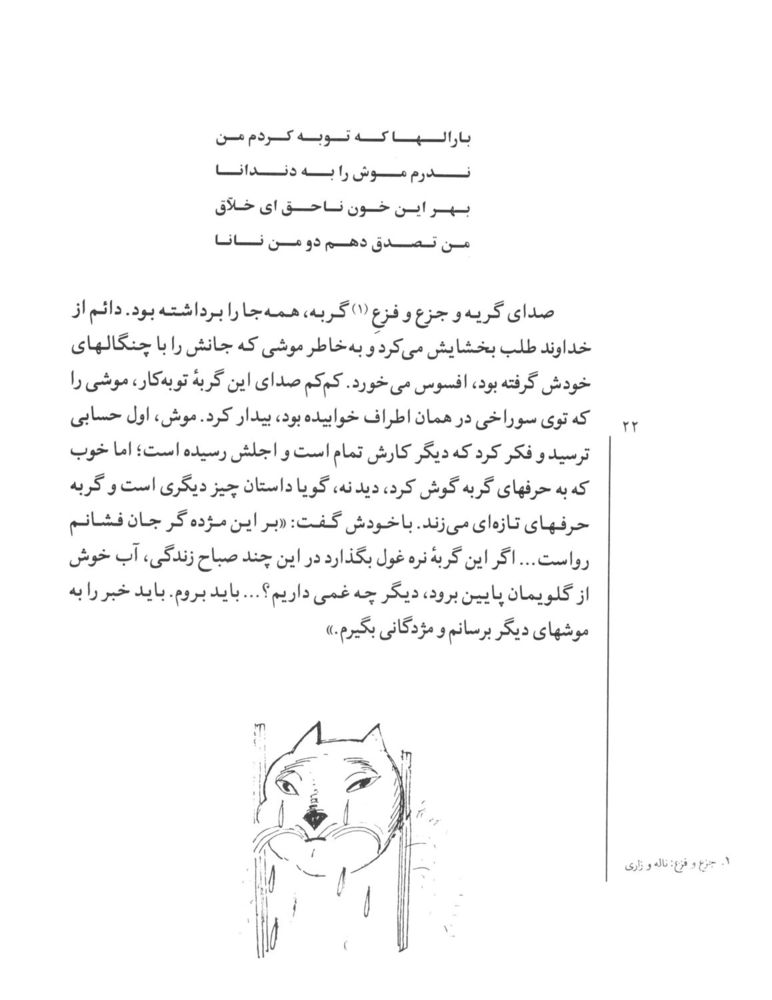 بارالــهــا کــه تــوبــه کــردم من
نــدرم مــوش را بــه دنــدانــا
بــهــر این خــون نــاحــق ای خــلاّق
مــن تــصــدق دهــم دو مــن نــانــا
صدای گریه و جزع و فزعِ (۱) گربه، همه‌جا را برداشته بود. دائم از
خداوند طلب بخشایش می‌کرد و به‌خاطر موشی که جانش را با چنگالهای
خودش گرفته بود، افسوس می‌خورد. کم‌کم صدای این گربهٔ توبه‌کار، موشی را
که توی سوراخی در همان اطراف خوابیده بود، بیدار کرد. موش، اول حسابی
ترسید و فکر کرد که دیگر کارش تمام است و اجلش رسیده است؛ اما خوب
که به حرفهای گربه گوش کرد، دید نه، گویا داستان چیز دیگری است و گربه
حرفهای تازه‌ای می‌زند. با خودش گفت: «بر این مژده گر جان فشانم
رواست... اگر این گربهٔ نره غول بگذارد در این چند صباح زندگی، آب خوش
از گلویمان پایین برود، دیگر چه غمی داریم؟... باید بروم. باید خبر را به
موشهای دیگر برسانم و مژدگانی بگیرم.»
۲۲
۱. جزع و فزع: ناله و زاری